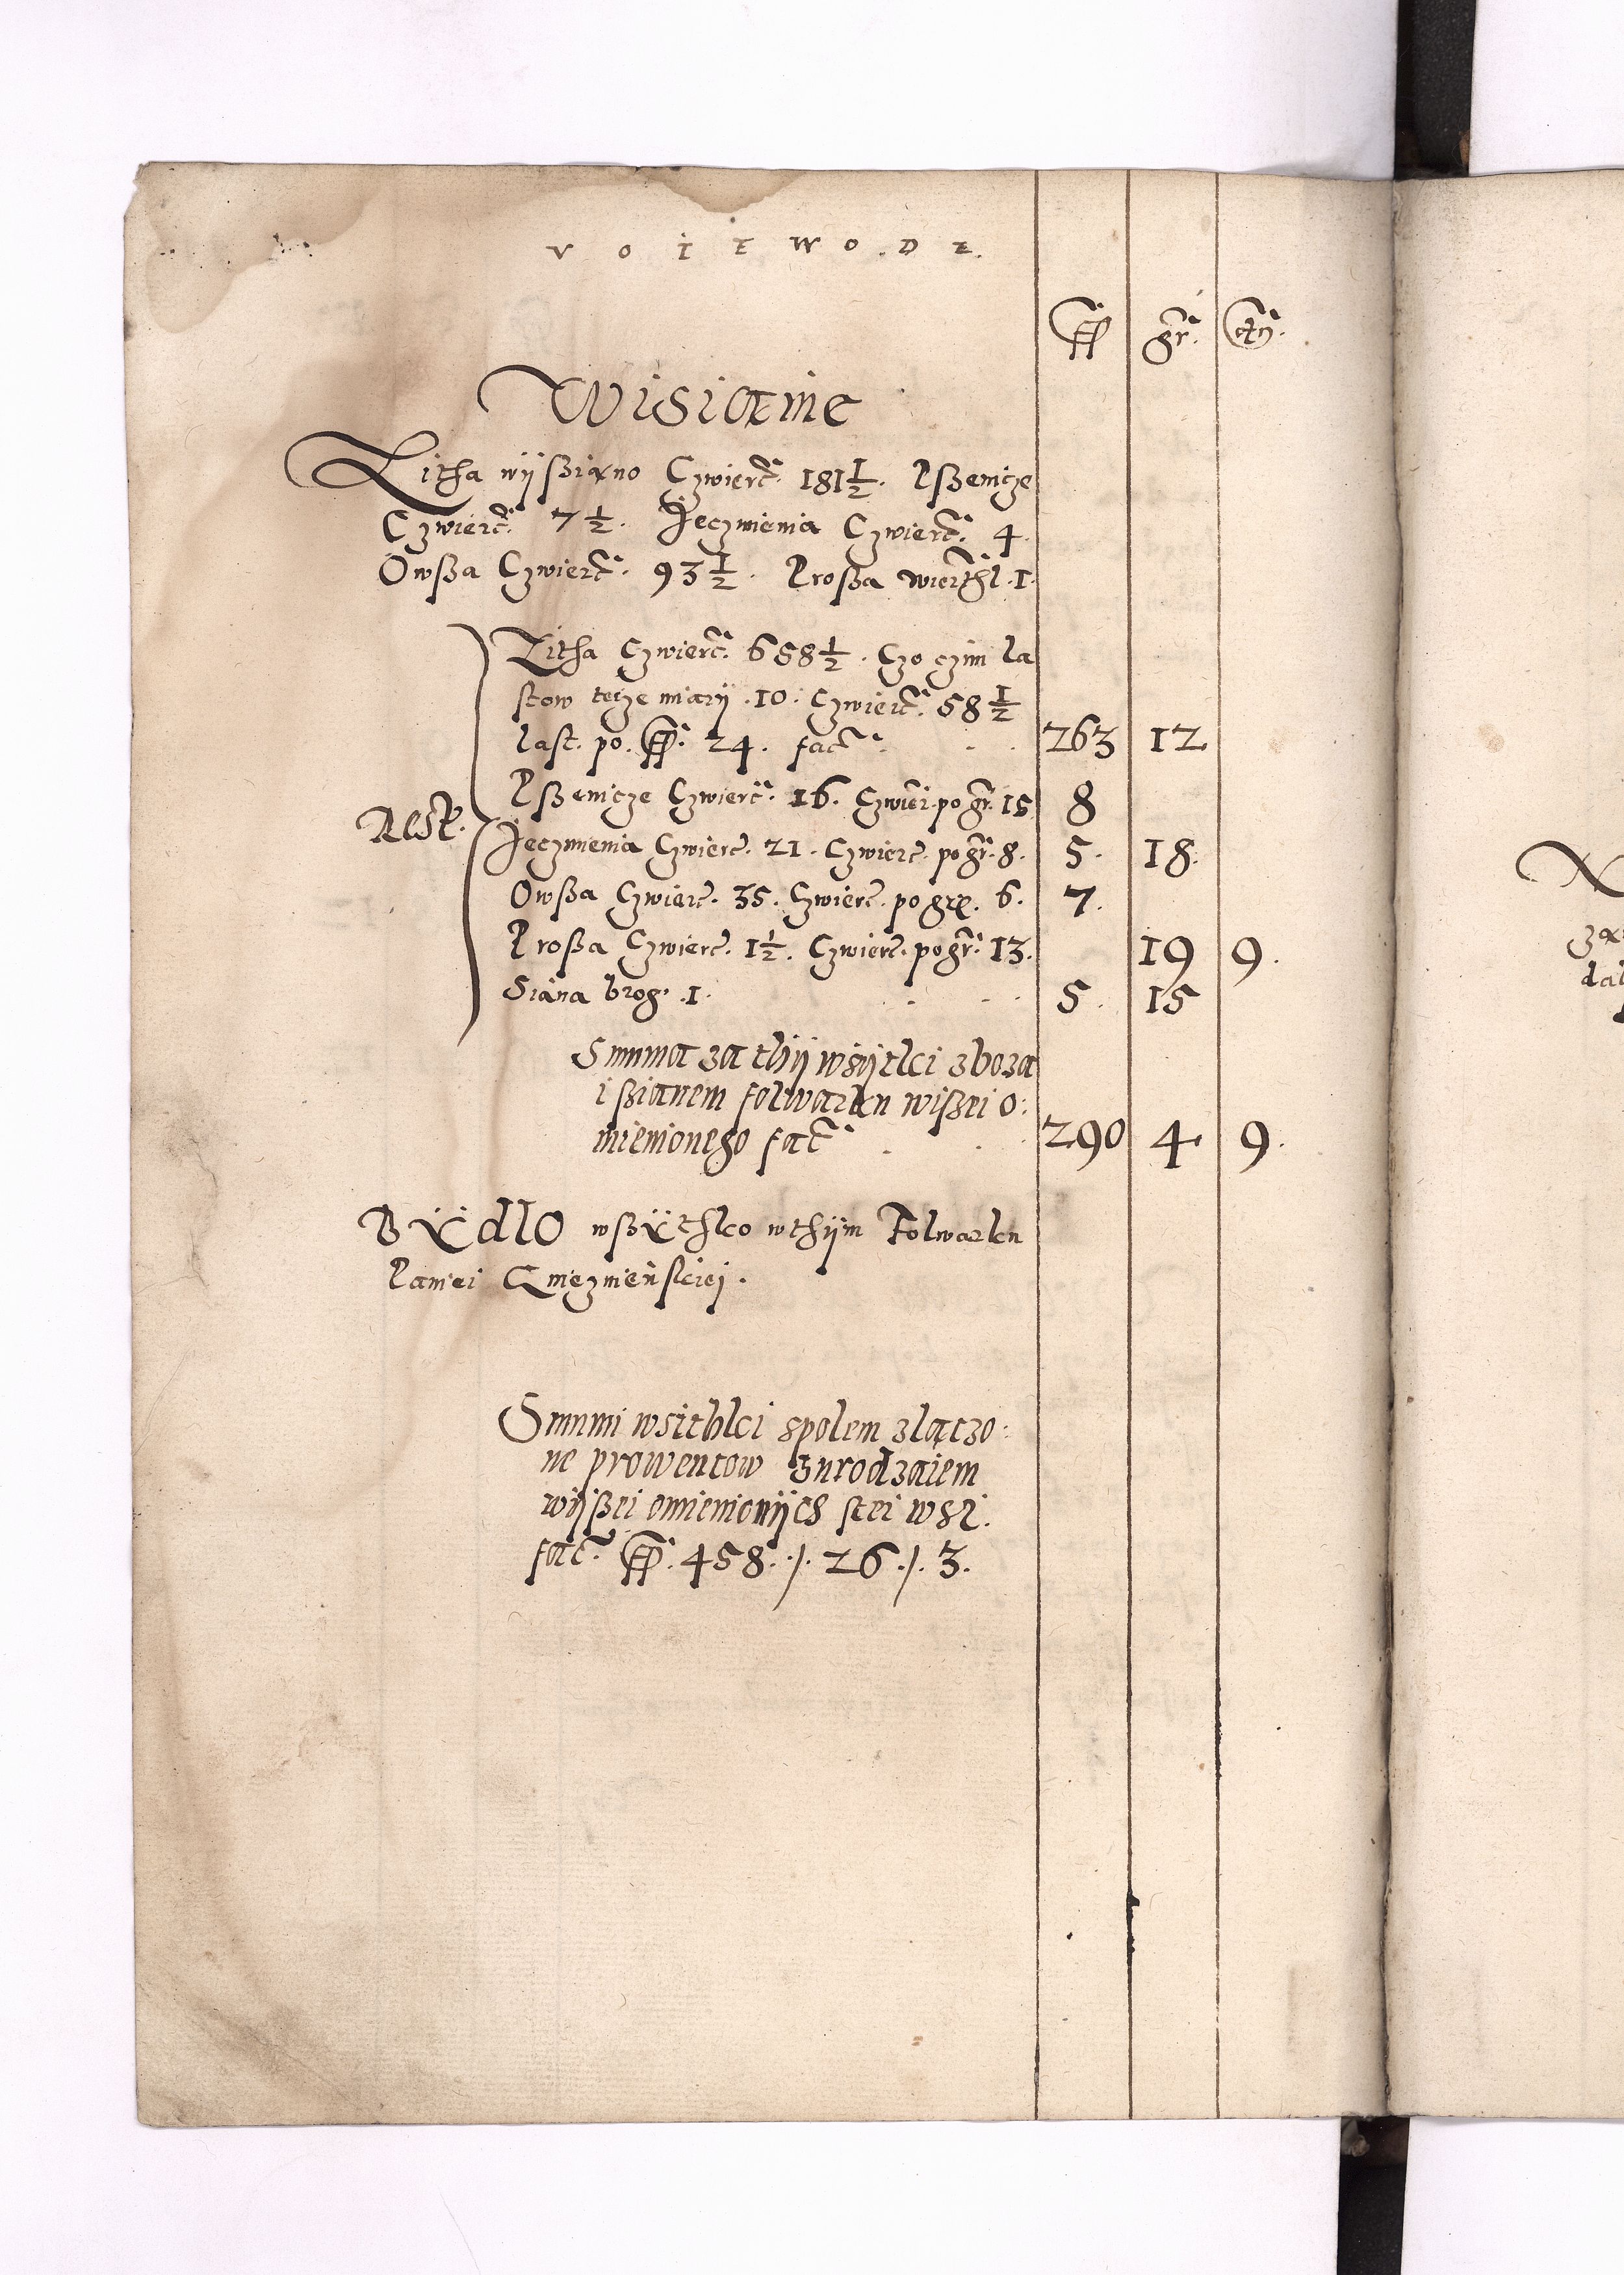 VOIEWODZ.
ff gr. den.
Wisianie
Zitha wÿßiano Czwierc. 181 1/2. Pßenicze
Czwierc. 7 1/2. Jeczmienia Czwierc. 4.
Owßa Czwierc. 93 1/2. Proßa wierthl. 1.
Zitha Czwierc. 658 1/2. Czo czini la
stow teize miarÿ .10. Czwierc. 58 1/2
last. po. ff. 24. fac. 263 12
Pßenicze Czwierc. 16. Czwier. po gr. 15 8
Rest.
Jeczmienia Czwierc. 21. Czwierc. po gr. 8. 5. 18.
Owßa Czwierc. 35. Czwierc. po gr. 6. 7.
Proßa Czwierc. 1 1/2. Czwierc. po gr. 13. 19 9.
Siana brog. .1. 5. 15
Summa za thÿ wsÿtki zboza
i ßianem folwarku wißei o:
mienionego fac. 290 4 9.
BŸdlo wßÿthko wthÿm Folwarku
Paniei Gnieznieńskiej.
Summi wsithki spolem zlączo:
ne prowentow z urodzaiem
wÿßei omienionÿch stei wsi.
fac. ff. 458. ./. 26 ./. 3.